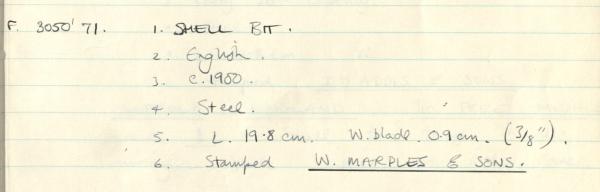 F. 3050'71. 1. SHELL BIT.
2. English.
3. c.1900.
4. Steel.
5. L. 19.8 cm. W. blade. 0.9 cm. (3/8").
6. Stamped W. MARPLES & SONS.